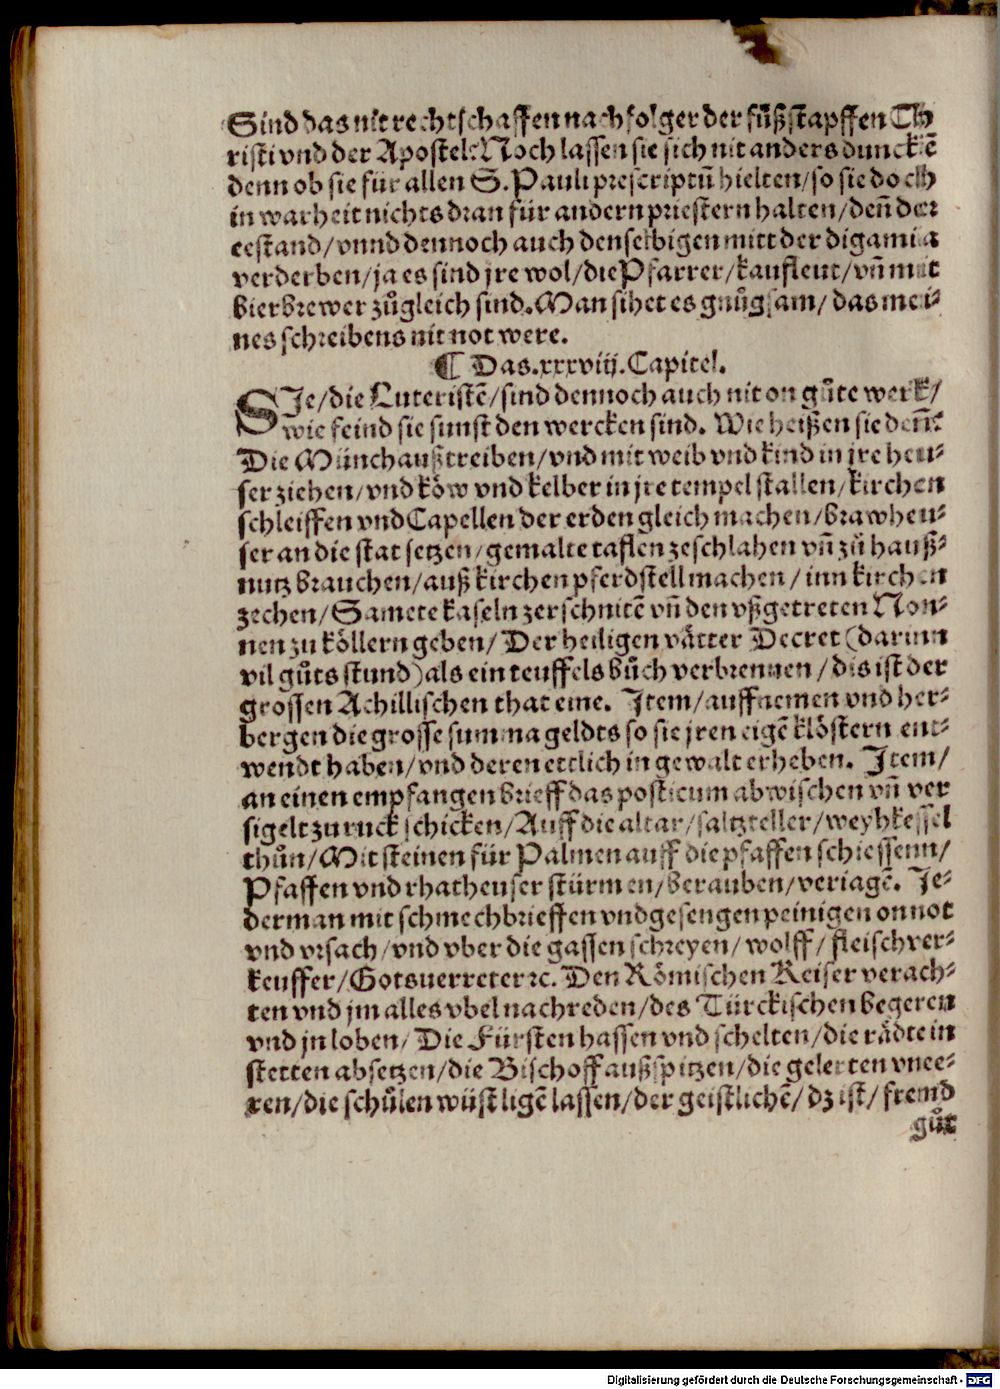 Sind das nit rechtschaffen nachfolger der fůßstapffen Ch
risti vnd der Apostel? Noch lassen sie sich nit anders dunckē
denn ob sie für allen S. Pauli prescriptū hielten/ so sie doch
in warheit nichts dran für andern priestern halten/ deñ der
eestand/ vnnd dennoch auch denselbigen mitt der digamia
verderben/ ja es sind jre wol/ die Pfarrer/ kaufleut/ vñ mit
bierbrewer zůgleich sind. Man sihet es gnůgsam/ das mei⸗
nes schreibens nit not were.
¶ Das .xxxviij. Capitel.
SIe/ die Luteristē/ sind dennoch auch nit on gůte werk/
wie feind sie sunst den wercken sind. Wie heißen sie deñ?
Die Münch außtreiben/ vnd mit weib vnd kind in jre heu⸗
ser ziehen/ vnd kȯw vnd kelber in jre tempel stallen/ kirchen
schleiffen vnd Capellen der erden gleich machen/ brawheu⸗
ser an die stat setzen/ gemalte taflen zeschlahen vñ zů hauß⸗
nutz brauchen/ auß kirchen pferdstell machen/ inn kirchen
zechen/ Samete kaseln zerschnitē vñ den vßgetreten Non⸗
nen zu köllern geben/ Der heiligen våtter Decret (darinn
vil gůts stund) als ein teuffels bůch verbrennen/ dis ist der
grossen Achillischen that eine. Item/ auffnemen vnd her⸗
bergen die grosse summa geldts so sie jren eigē klöstern ent⸗
wendt haben/ vnd deren ettlich in gewalt erheben. Item/
an einen empfangen brieff das posticum abwischen vñ ver
sigelt zu ruck schicken/ Auff die altar/ saltzteller/ weyhkessel
thůn/ Mit steinen für Palmen auff die pfaffen schiessenn/
Pfaffen vnd rhatheuser stürmen/ berauben/ veriagē. Je⸗
derman mit schmechbrieffen vnd gesengen peinigen on not
vnd vrsach/ vnd vber die gassen schreyen/ wolff/ fleischver⸗
keuffer/ Gotsuerreter ꝛc. Den Römischen Keiser verach⸗
ten vnd jm alles vbel nachreden/ des Türckischen begeren
vnd jn loben/ Die Fürsten hassen vnd schelten/ die rådte in
stetten absetzen/ die Bischoff außspitzen/ die gelerten vnee⸗
ren/ die schůlen wüst ligē lassen/ der geistlichē/ dz ist/ fremd
gůt
Digitalisierung gefördert durch die Deutsche Forschungsgemeinschaft - DFG